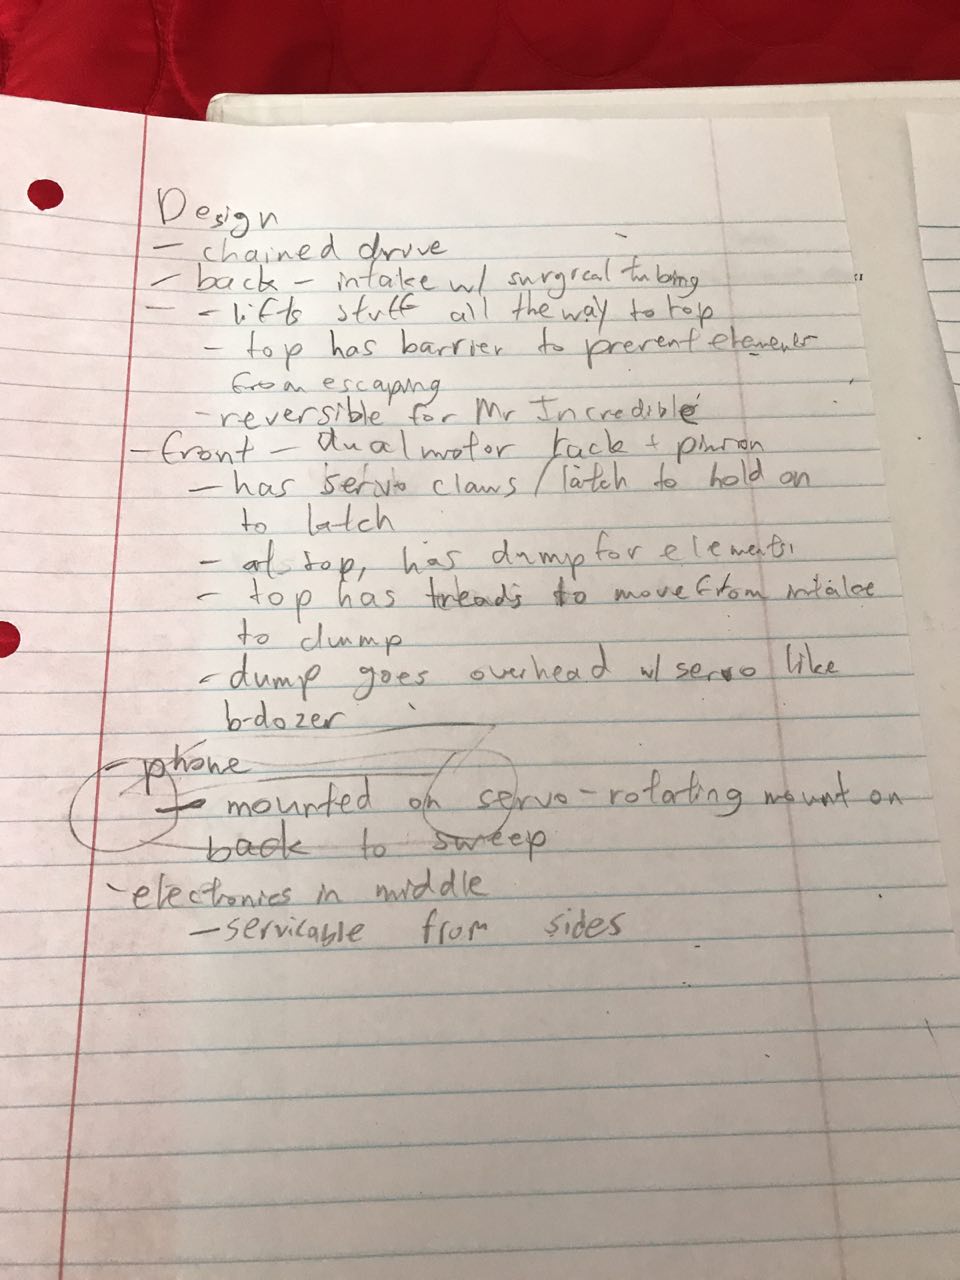 Design
- chained drive
- back - intake w/ surgical tubing
- - lifts stuff all the way to top
- top has barrier to prevent elements
from escaping
- reversible for Mr Incredible
- front - dual motor rack + pinion
- has servo claws / latch to hold on
to latch
- at top, has dump for elements
- top has treads to move from intake
to dump
- dump goes overhead w/ servo like
b-dozer
- phone
- mounted on servo-rotating mount on
back to sweep
- electronics in middle
- servicable from sides